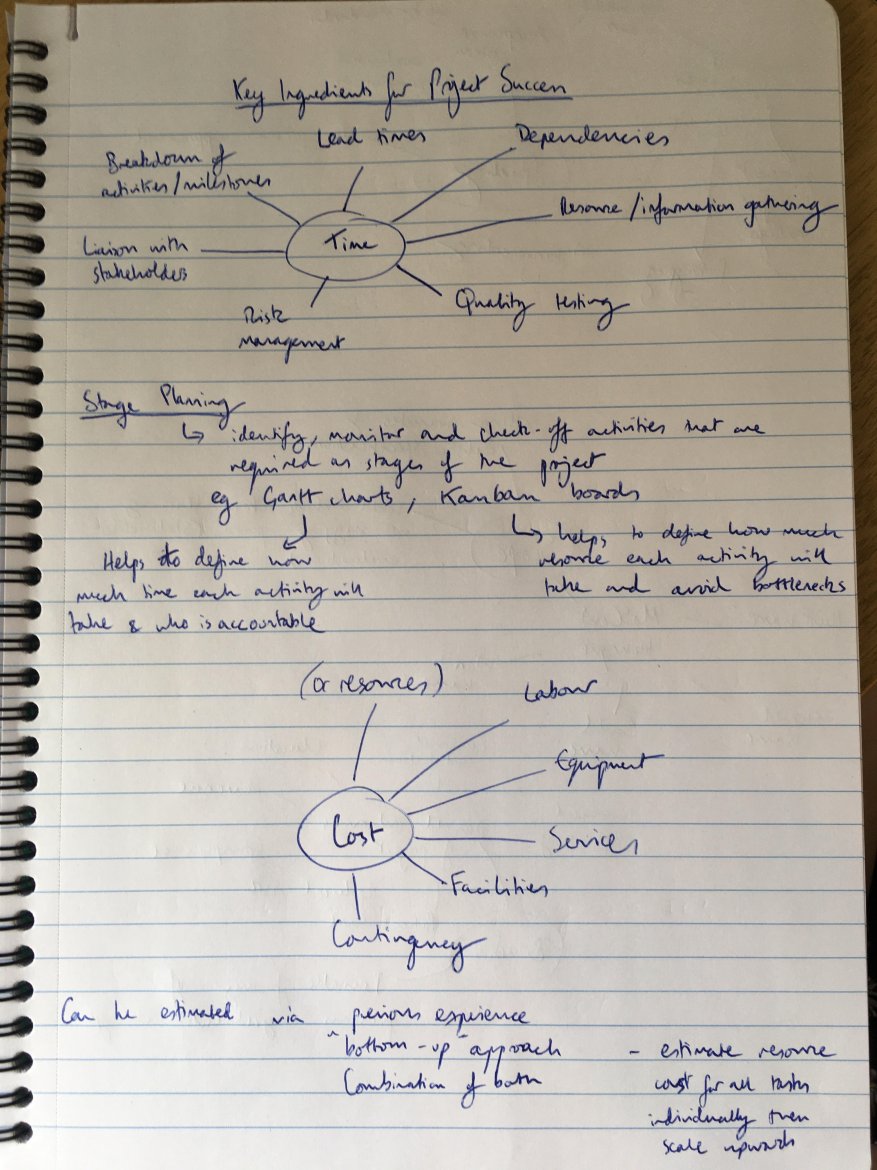 Key Ingredients for Project Success
Lead times
Dependencies
Breakdown of
activities/milestones
Resource/information gathering
Time
Liaison with
stakeholders
Quality testing
Risk
management
Stage Planning
↳ identify, monitor and check-off activities that are
required as stages of the project
eg Gantt charts, Kanban boards
Helps to define how
much time each activity will
take & who is accountable
↳ helps to define how much
resource each activity will
take and avoid bottlenecks
(or resources)
Labour
Equipment
Cost
Services
Facilities
Contingency
Can be estimated via previous experience
"bottom-up" approach - estimate resource
Combination of both cost for all tasks
individually then
scale upwards